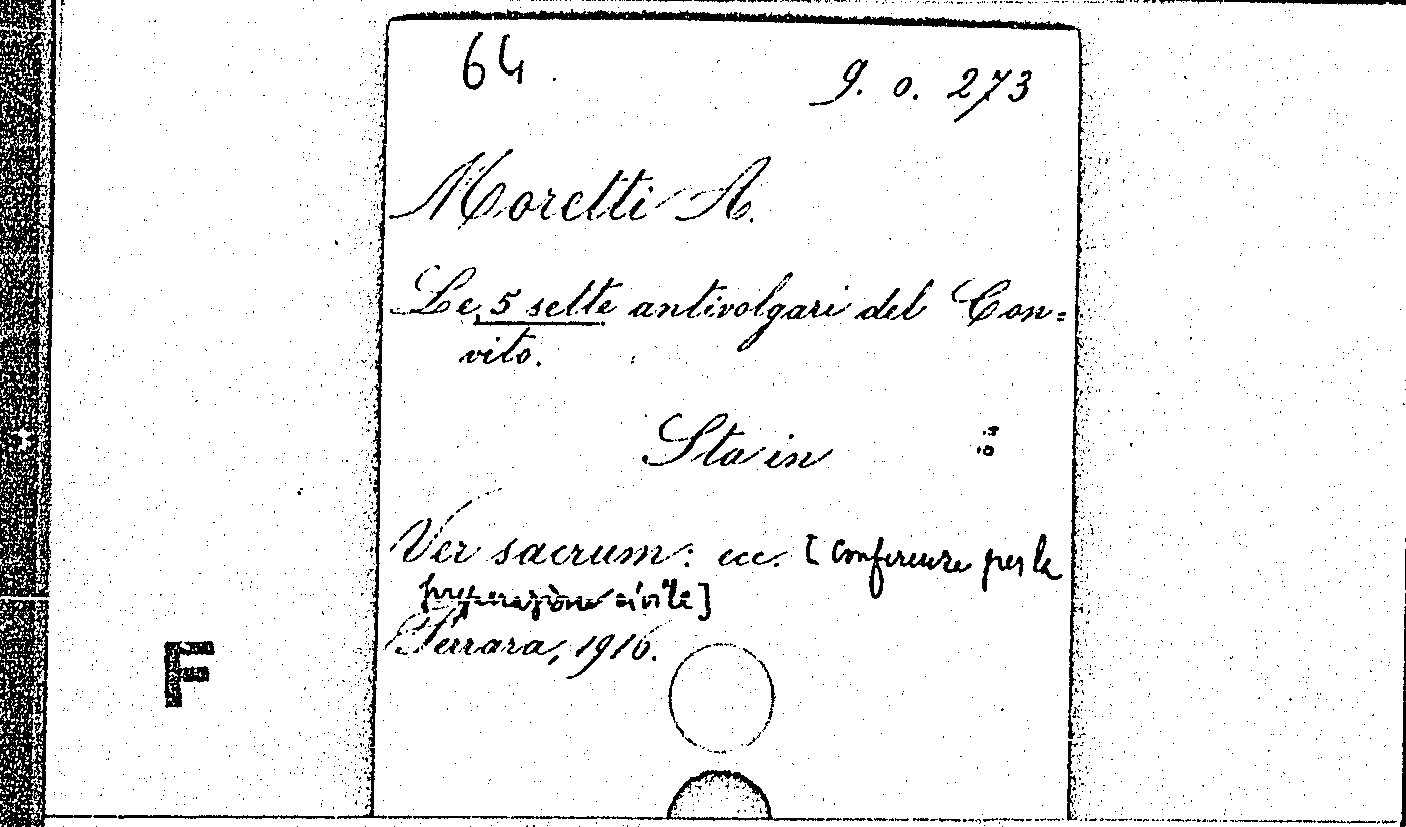 64
9. o. 273
Moretti A.
Le 5 sette antivolgari del Con=
vito.
Sta in
Ver sacrum: ecc. [conferenze per la
preparazione civile]
Ferrara, 1916.
F